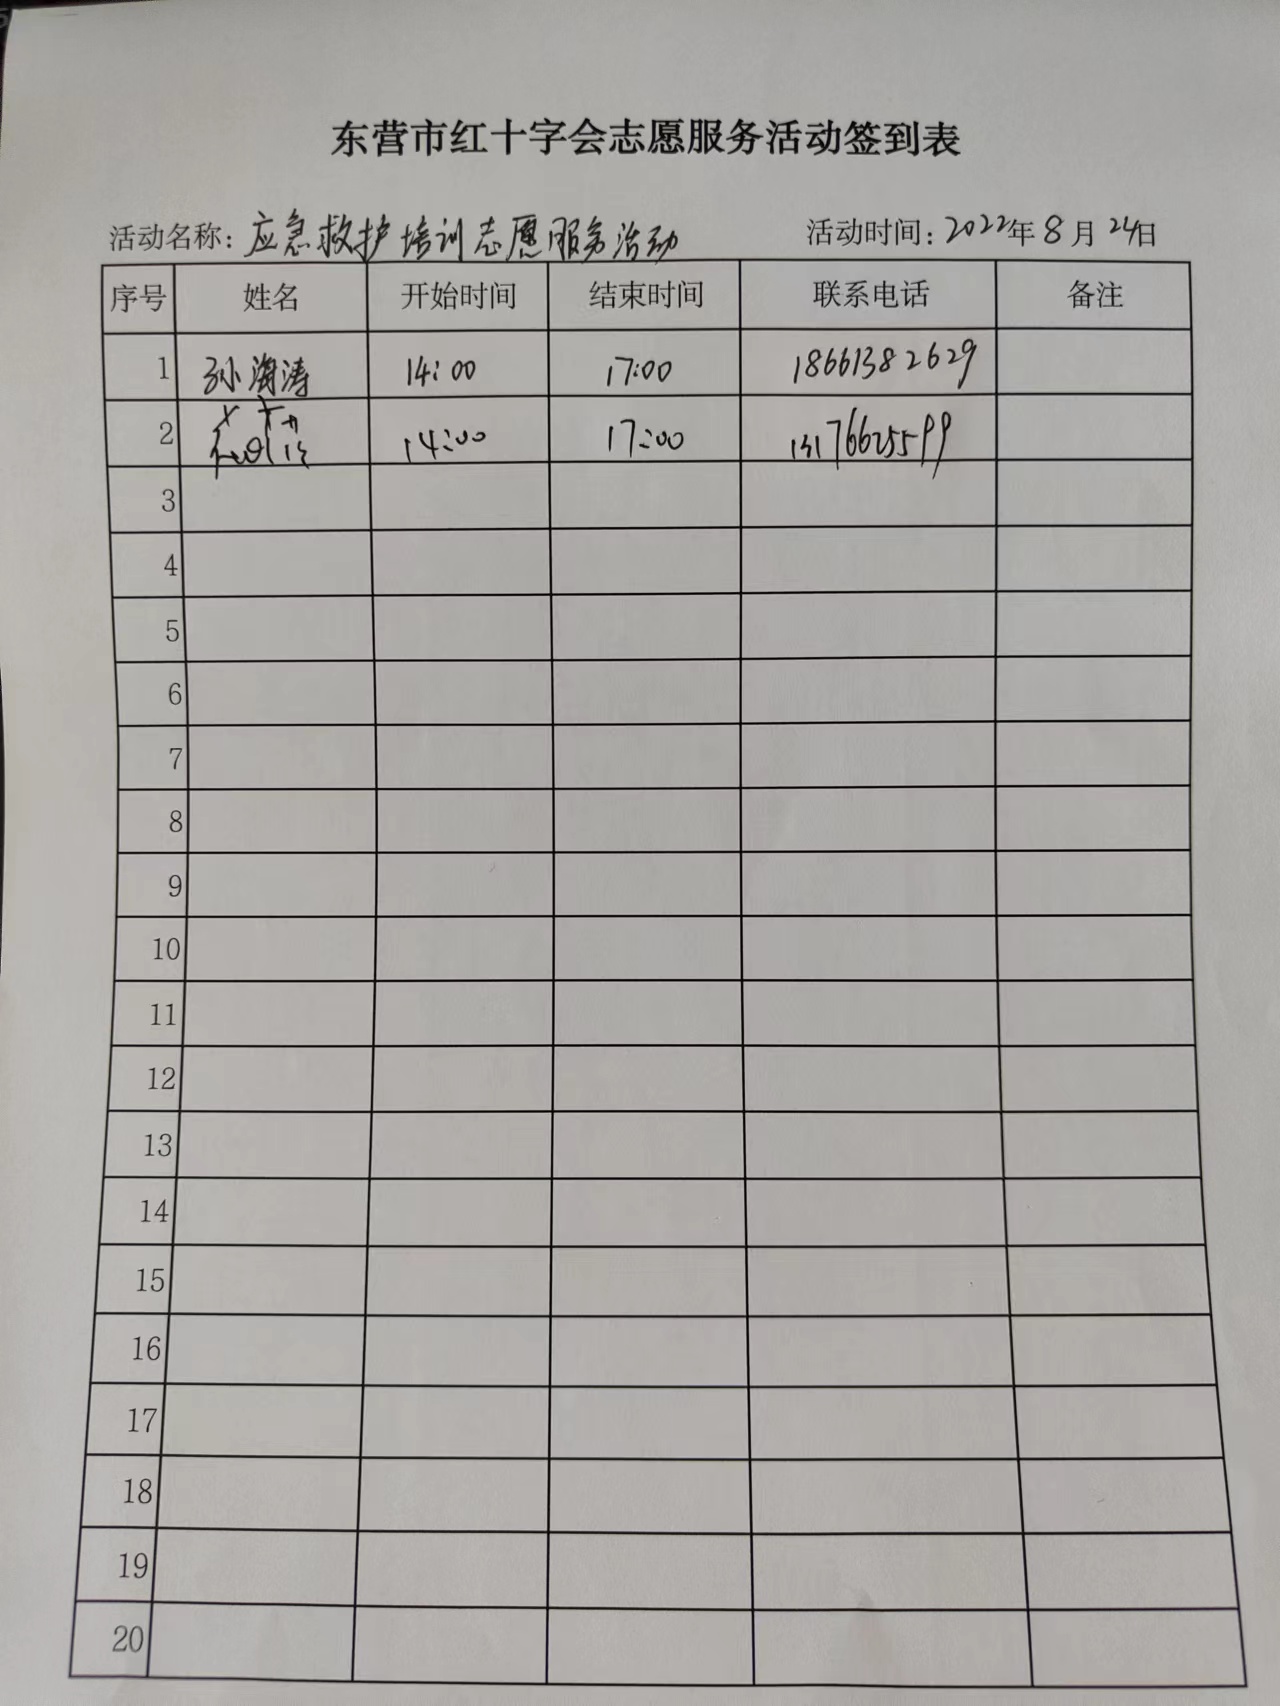 东营市红十字会志愿服务活动签到表
活动名称：应急救护培训志愿服务活动 活动时间：2022年8月24日
序号 姓名 开始时间 结束时间 联系电话 备注
1 孙海涛 14：00 17：00 18661382629
2 14：00 17：00 13176625599
3
4
5
6
7
8
9
10
11
12
13
14
15
16
17
18
19
20